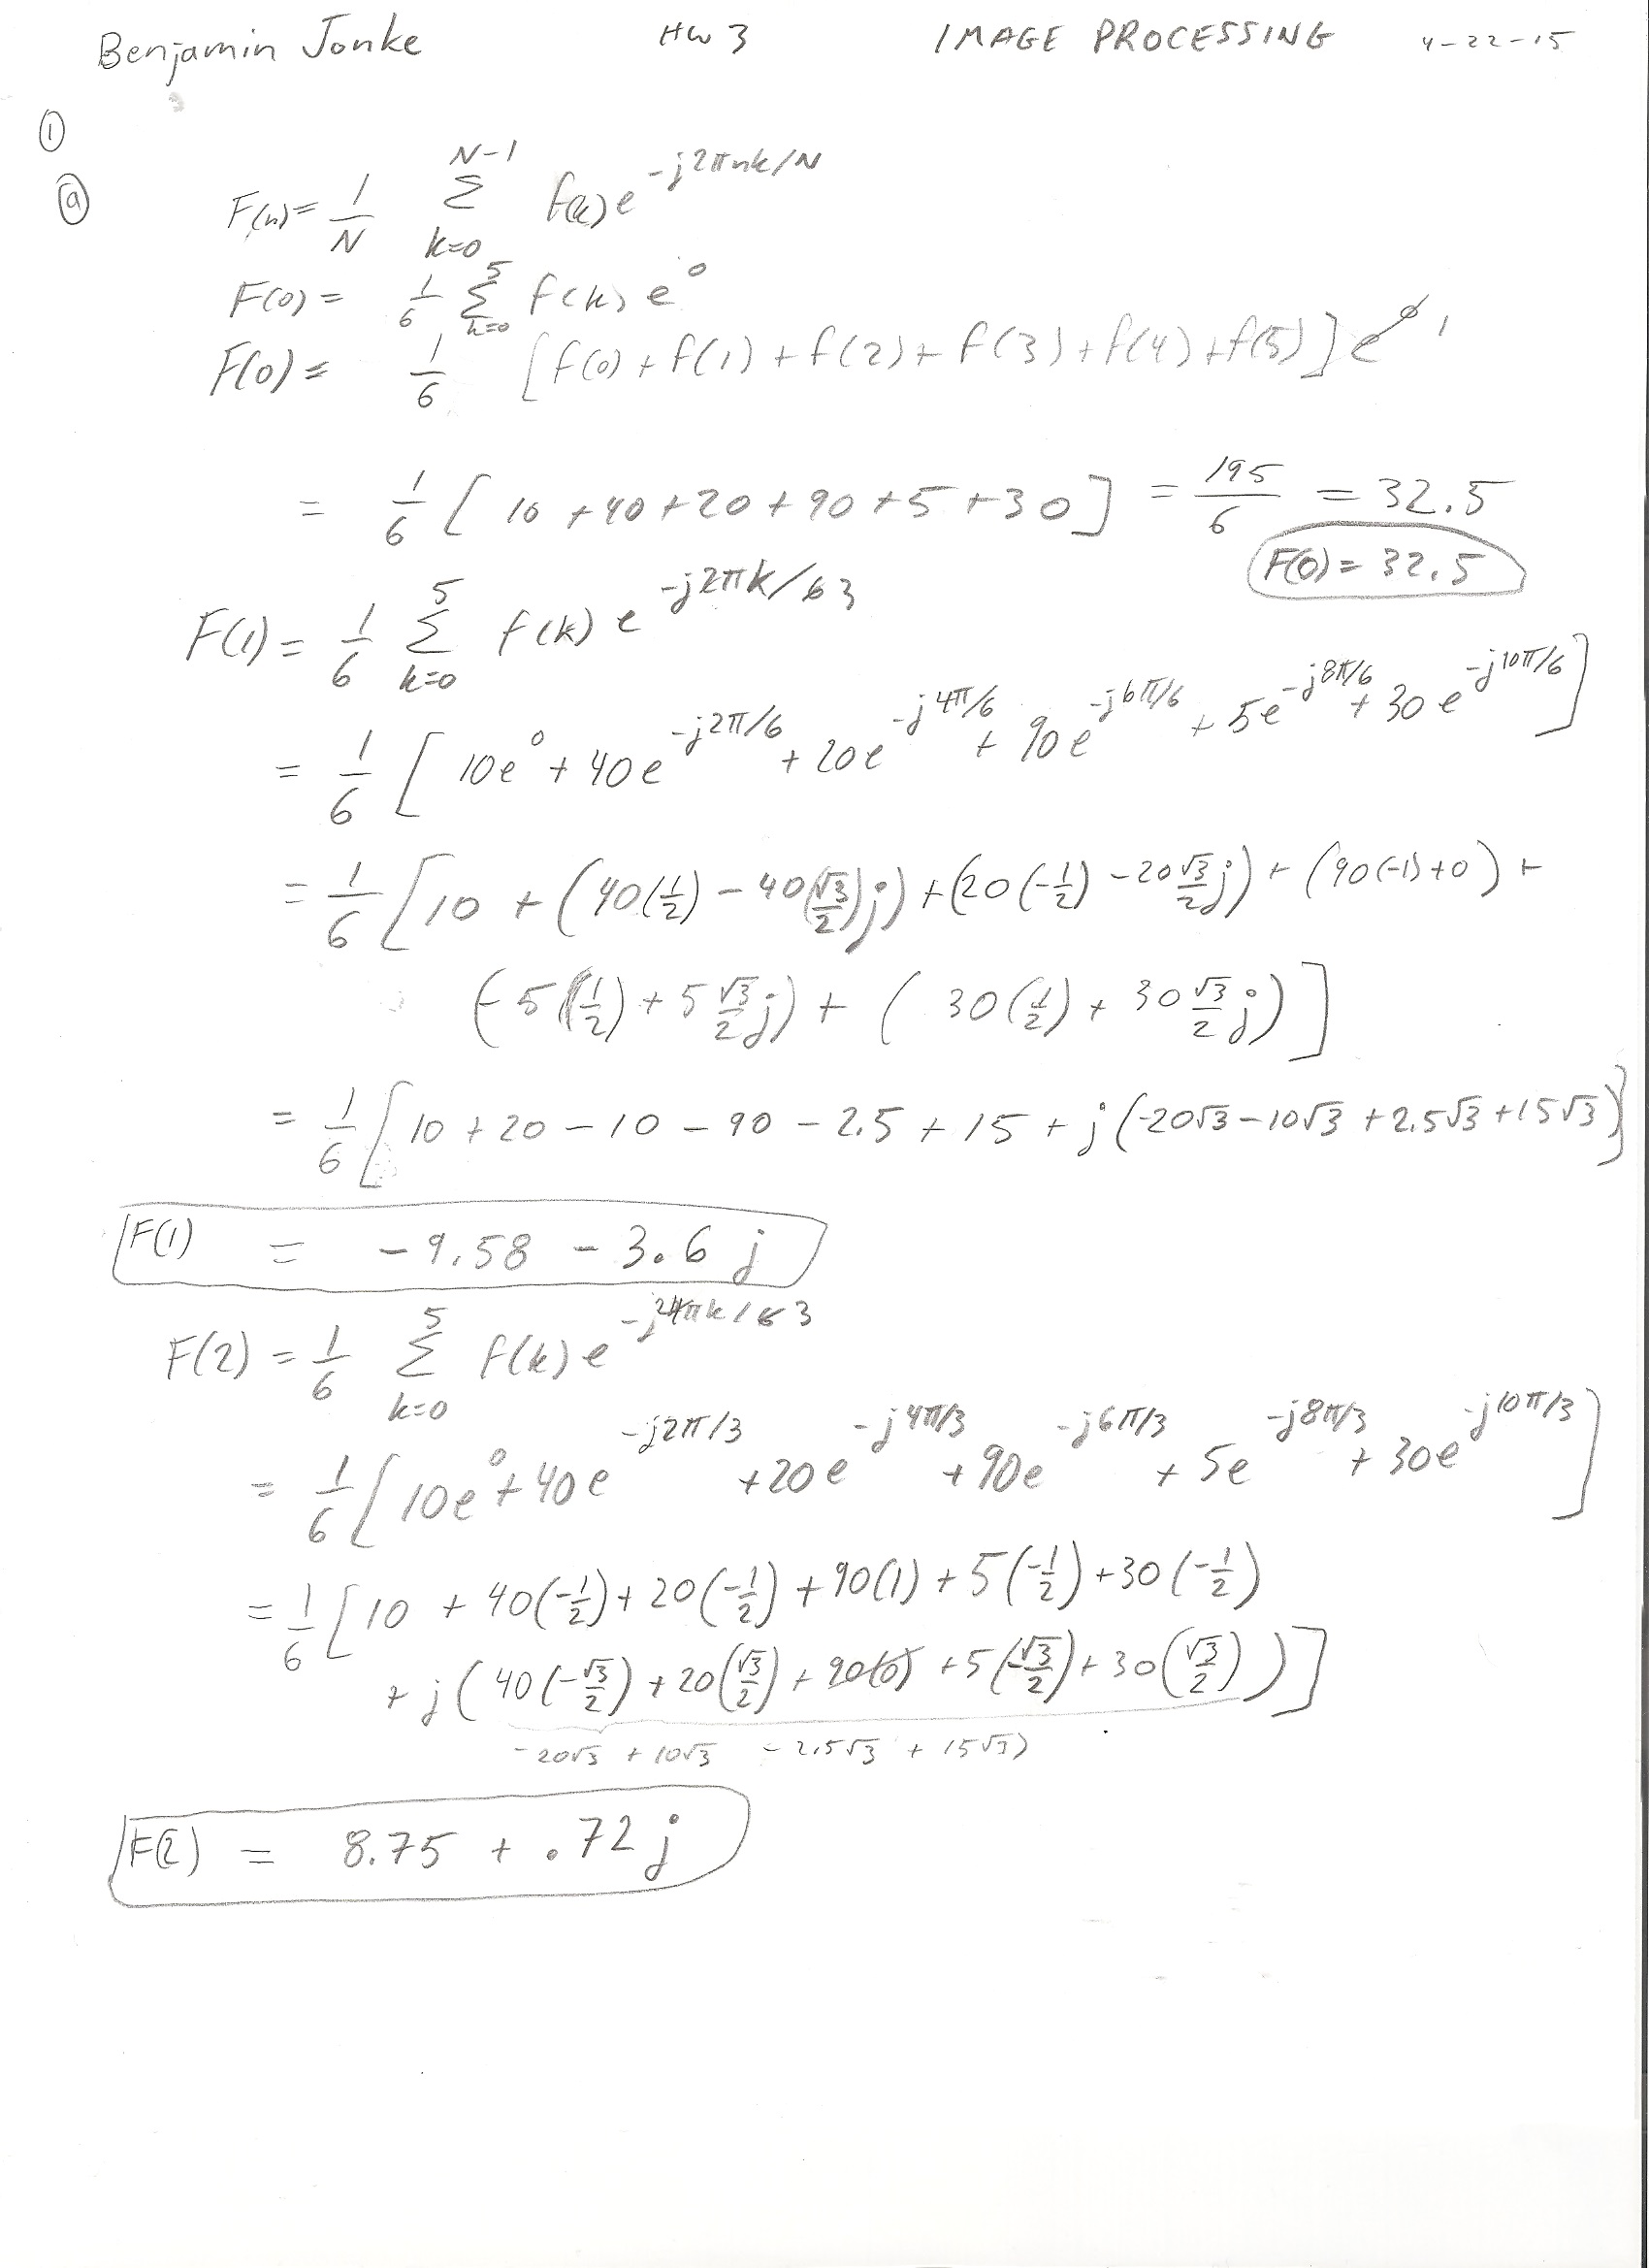 Benjamin Jonke HW 3 IMAGE PROCESSING 4-22-15
①
ⓐ F(n) = 1/N Σ_{k=0}^{N-1} f(k) e^{-j2πnk/N}
F(0) = 1/6 Σ_{k=0}^{5} f(k) e^0
F(0) = 1/6 [f(0) + f(1) + f(2) + f(3) + f(4) + f(5)] e^0 1
= 1/6 [10 + 40 + 20 + 90 + 5 + 30] = 195/6 = 32.5
F(0) = 32.5
F(1) = 1/6 Σ_{k=0}^{5} f(k) e^{-j2πk/6 3}
= 1/6 [10e^0 + 40e^{-j2π/6} + 20e^{-j4π/6} + 90e^{-j6π/6} + 5e^{-j8π/6} + 30e^{-j10π/6}]
= 1/6 [10 + (40(1/2) - 40(√3/2)j) + (20(-1/2) - 20 √3/2 j) + (90(-1) + 0) +
(-5(1/2) + 5 √3/2 j) + (30(1/2) + 30 √3/2 j)]
= 1/6 [10 + 20 - 10 - 90 - 2.5 + 15 + j(-20√3 - 10√3 + 2.5√3 + 15√3)]
F(1) = -9.58 - 3.6 j
F(2) = 1/6 Σ_{k=0}^{5} f(k) e^{-j2πk/3}
= 1/6 [10e^0 + 40e^{-j2π/3} + 20e^{-j4π/3} + 90e^{-j6π/3} + 5e^{-j8π/3} + 30e^{-j10π/3}]
= 1/6 [10 + 40(-1/2) + 20(-1/2) + 90(1) + 5(-1/2) + 30(-1/2)
+ j(40(-√3/2) + 20(√3/2) + 90(0) + 5(-√3/2) + 30(√3/2))]
-20√3 + 10√3 - 2.5√3 + 15√3)
F(2) = 8.75 + .72 j